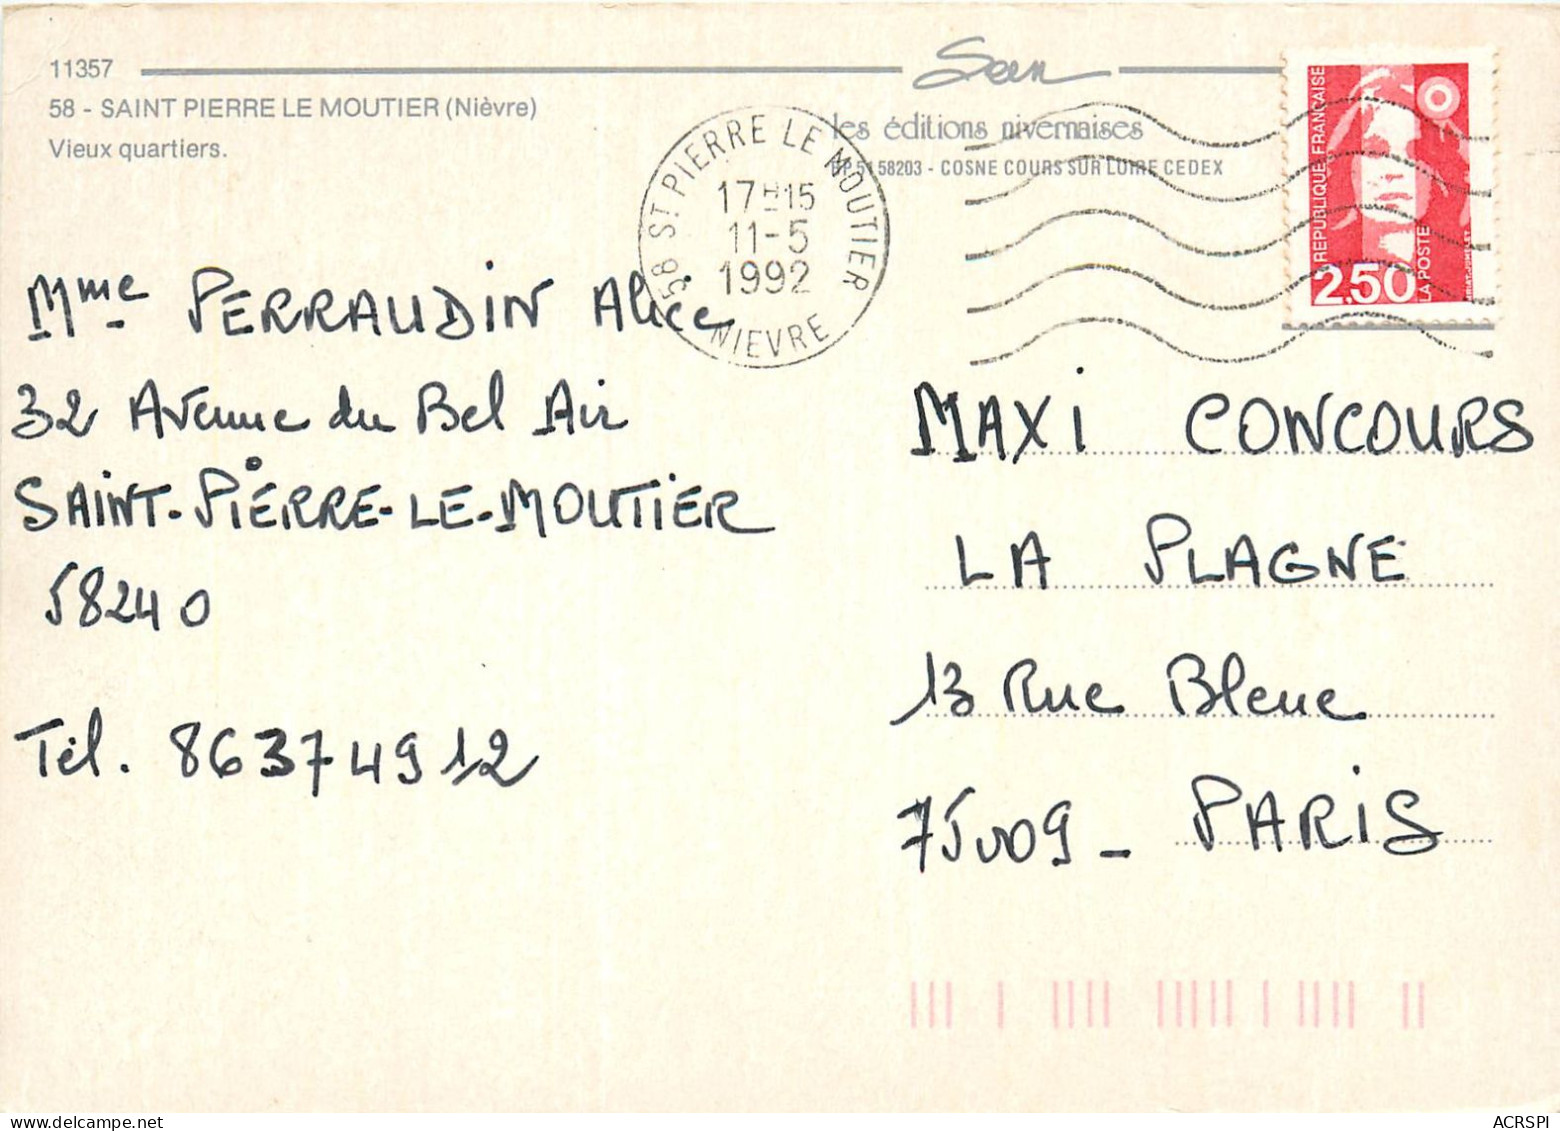 11357
Seen
58 - SAINT PIERRE LE MOUTIER (Nièvre)
Vieux quartiers.
les éditions nivernaises
BP 51 58203 - COSNE COURS SUR LOIRE CEDEX
58 ST PIERRE LE MOUTIER
17H15
11-5
1992
NIEVRE
REPUBLIQUE FRANÇAISE
LA POSTE
2,50
Mme PERRAUDIN Alice
32 Avenue du Bel Air
SAINT-PIERRE-LE-MOUTIER
58240
Tél. 86374912
MAXI CONCOURS
LA PLAGNE
13 Rue Bleue
75009 - PARIS
ACRSPI